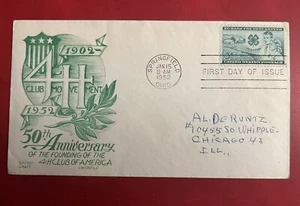 1902
4H
CLUB MOVEMENT
1952
50th Anniversary
OF THE FOUNDING OF THE
4H CLUB OF AMERICA
SPRINGFIELD
JAN 15
9-AM
1952
OHIO
FIRST DAY OF ISSUE
AL. DERUNTZ
10455 SO. WHIPPLE-
CHICAGO 43
ILL.,